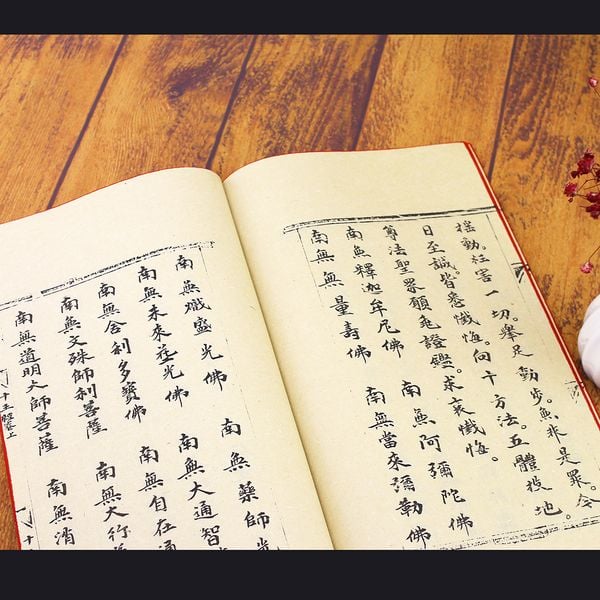 搖動。枉害一切。舉足動步。無非是罪。今
日至誠。皆悉懺悔。向十方法。五體投地。
尊法聖眾。願免證鑑。求哀懺悔。
南無釋迦牟尼佛 南無阿彌陀佛
南無無量壽佛 南無當來彌勒佛
南無熾盛光佛 南無藥師光
南無未來莊光佛 南無大通智
南無舍利多寶佛 南無自在通
南無文殊師利菩薩 南無大行
南無道明大師菩薩 南無消
十王懺卷上